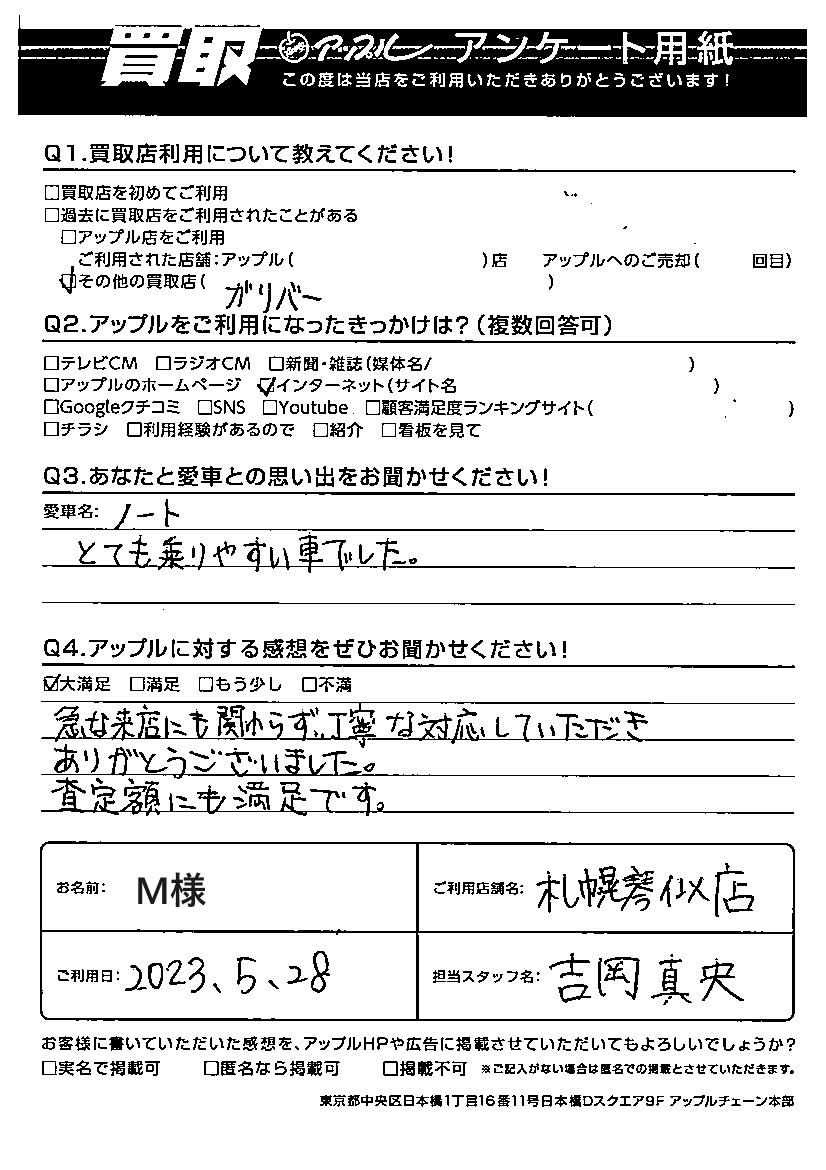 買取 アップル アンケート用紙
この度は当店をご利用いただきありがとうございます!
Q1.買取店利用について教えてください!
□買取店を初めてご利用
□過去に買取店をご利用されたことがある
□アップル店をご利用
ご利用された店舗:アップル( )店 アップルへのご売却( 回目)
☑その他の買取店( )
ガリバー
Q2.アップルをご利用になったきっかけは?(複数回答可)
□テレビCM □ラジオCM □新聞・雑誌(媒体名/ )
□アップルのホームページ ☑インターネット(サイト名 )
□Googleクチコミ □SNS □Youtube □顧客満足度ランキングサイト( )
□チラシ □利用経験があるので □紹介 □看板を見て
Q3.あなたと愛車との思い出をお聞かせください!
愛車名: ノート
とても乗りやすい車でした。
Q4.アップルに対する感想をぜひお聞かせください!
☑大満足 □満足 □もう少し □不満
急な来店にも関わらず、丁寧な対応していただき
ありがとうございました。
査定額にも満足です。
お名前: M様 ご利用店舗名: 札幌琴似店
ご利用日: 2023、5、28 担当スタッフ名: 吉岡真央
お客様に書いていただいた感想を、アップルHPや広告に掲載させていただいてもよろしいでしょうか?
□実名で掲載可 □匿名なら掲載可 □掲載不可 ※ご記入がない場合は匿名での掲載とさせていただきます。
東京都中央区日本橋1丁目16番11号日本橋Dスクエア9F アップルチェーン本部